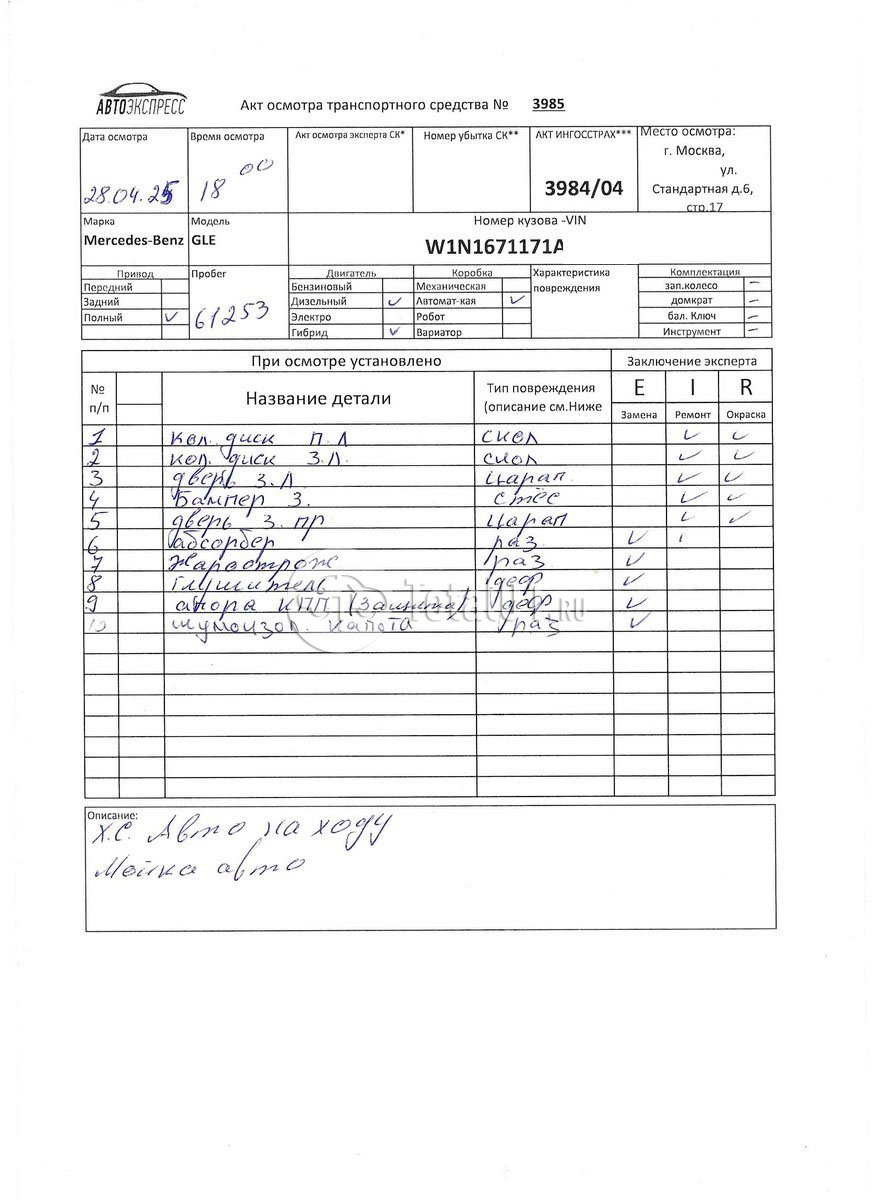 АВТОЭКСПРЕСС
Акт осмотра транспортного средства № 3985
Дата осмотра Время осмотра Акт осмотра эксперта СК* Номер убытка СК** АКТ ИНГОССТРАХ*** Место осмотра:
г. Москва,
ул.
28.04.25 18 00 3984/04 Стандартная д.6,
стр.17
Марка Модель Номер кузова -VIN
Mercedes-Benz GLE W1N1671171A
Привод Пробег Двигатель Коробка Характеристика Комплектация
Передний Бензиновый Механическая повреждения зап.колесо –
Задний Дизельный ✓ Автомат-кая ✓ домкрат –
Полный ✓ 61253 Электро Робот бал. Ключ –
Гибрид ✓ Вариатор Инструмент –
При осмотре установлено Заключение эксперта
№ п/п Название детали Тип повреждения (описание см.Ниже E I R
Замена Ремонт Окраска
1 кол. диск П.Л скол ✓ ✓
2 кол. диск З.Л. скол ✓ ✓
3 дверь З.Л царап. ✓ ✓
4 Бампер З. стёс ✓ ✓
5 дверь З. пр царап ✓ ✓
6 абсорбер раз. ✓
7 раз ✓
8 глушитель деф ✓
9 опора КПП (Защита) деф ✓
10 шумоизол. капота раз ✓
TotalAuto.RU
Описание:
Х.С. Авто на ходу
Мойка авто